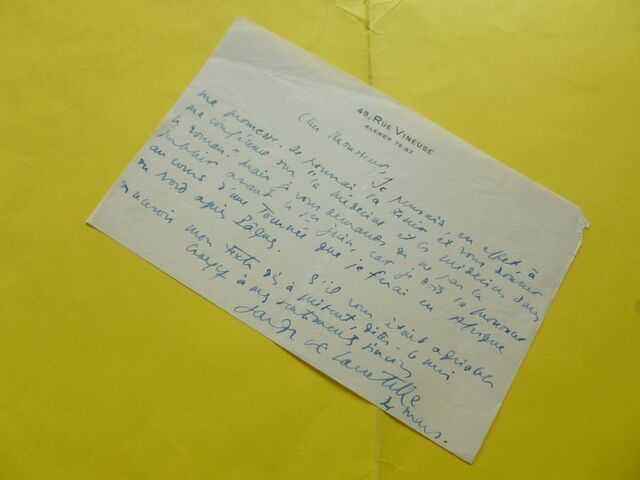 49, RUE VINEUSE
KLEBER 79-87
Cher Monsieur,
Je pensais, en effet, à
ma promesse de pouvoir la tenir et vous donner
ma conférence sur "la médecine et les médecins dans
le roman". Mais je vous demanderai de ne pas la
publier avant le 1er juin, car je dois la prononcer
au cours d'une Tournée que je ferai en Afrique
du Nord après Pâques.
S'il vous était agréable
de recevoir mon texte dès à présent, dites-le moi
Croyez à mes sentiments
24 mars.